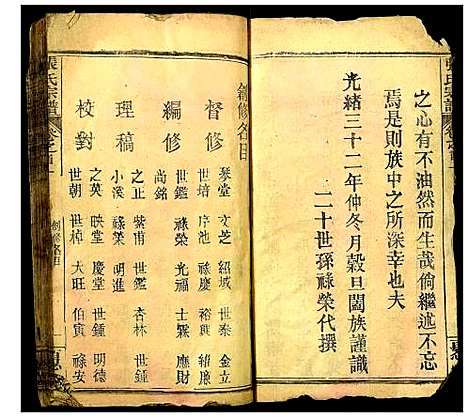 之心有不油然而生哉倘繼述不忘
焉是則族中之所深幸也夫
光緒三十二年仲冬月穀旦闔族謹識
二十世孫祿榮代撰
創修名目
督修
琴堂 文芝 紹域 世泰 金立
世培 序池 祿慶 裕興 維廉
編修
世鑑 祿榮 光福 士霖 應財
尚銘
理稿
之正 紫甫 世鑑 杏林 世鍾
小漢 祿榮 明進
校對
之英 映堂 慶堂 世鍾 明德
世朝 世樟 大旺 伯寅 祿安
張氏宗譜 卷之首一